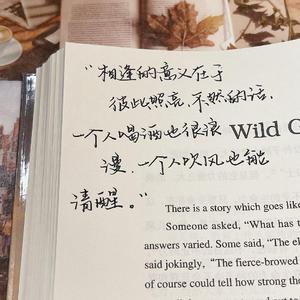 "相逢的意义在于
彼此照亮,不然的话,
一个人喝酒也很浪
漫,一个人吹风也能
清醒。"
Wild C
There is a story which goes like
Someone asked, "What has t
answers varied. Some said, "The el
said jokingly, "The fierce-browed
of course could tell how strong the